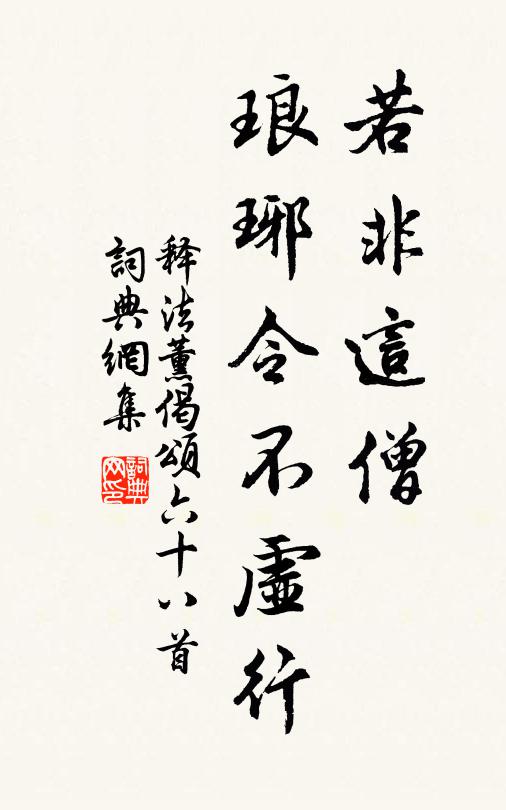 若非這僧
琅琊令不虛行
释法薰偈頌六十八首
詞典網集
詞典
网印